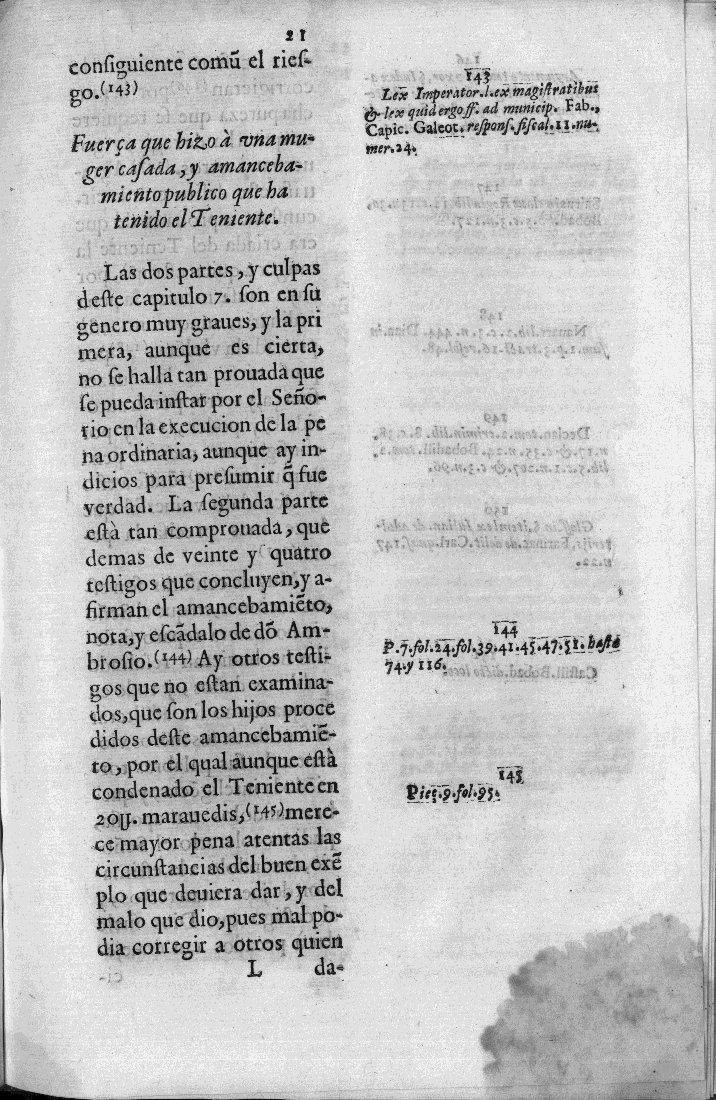 21
consiguiente comũ el ries-
go.(143)
Fuerça que hizo à vna mu-
ger casada, y amanceba-
miento publico que ha
tenido el Teniente.
Las dos partes, y culpas
deste capitulo 7. son en su
genero muy graues, y la pri
mera, aunque es cierta,
no se halla tan prouada que
se pueda instar por el Seño-
rio en la execucion de la pe
na ordinaria, aunque ay in-
dicios para presumir q̃ fue
verdad. La segunda parte
està tan comprouada, que
demas de veinte y quatro
testigos que concluyen, y a-
firman el amancebamiẽto,
nota, y escãdalo de dõ Am-
brosio.(144) Ay otros testi-
gos que no estan examina-
dos, que son los hijos proce
didos deste amancebamiẽ-
to, por el qual aunque està
condenado el Teniente en
20ȷȷ. marauedis,(145) mere-
ce mayor pena atentas las
circunstancias del buen exẽ
plo que deuiera dar, y del
malo que dio, pues mal po-
dia corregir a otros quien
L da-
143
Lex Imperator. l. ex magistratibus
& lex quid ergo ff. ad municip. Fab.,
Capic. Galeot. respons. fiscal. 11. nu-
mer. 24.
144
P. 7. fol. 24. fol. 39. 41. 45. 47. 51. hasta
74. y 116.
145
Pieç. 9. fol. 95.